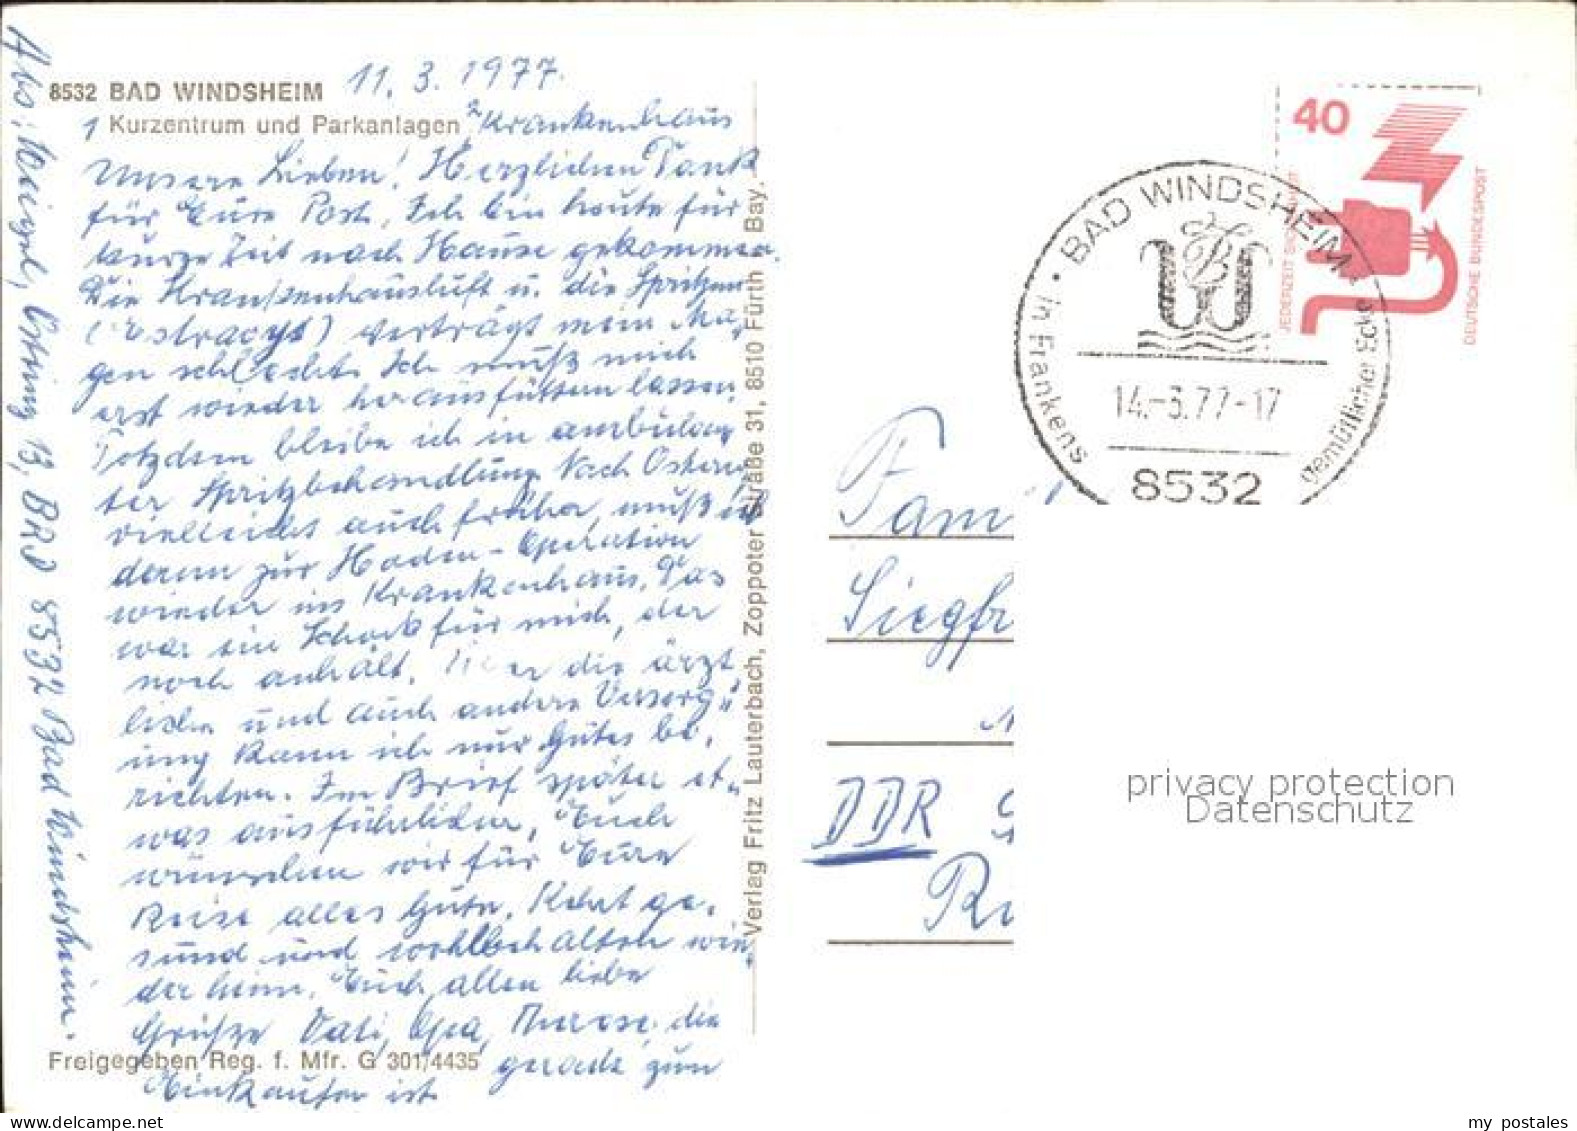 8532 BAD WINDSHEIM 11. 3. 1977.
1 Kurzentrum und Parkanlagen 2 Krankenhaus
Unsere Lieben! Herzlichen Dank
für Eure Post. Ich bin heute für
kurze Zeit nach Hause gekommen.
Die Krankenhausluft u. die Spritzen
(Estracyt) verträgt mein Ma-
gen schlecht. Ich muß mich
erst wieder herausfüttern lassen.
Totzdem bleibe ich in ambulan-
ter Spritzbehandlung. Nach Ostern,
vielleicht auch früher, muß ich
denn zur Hoden-Operation
wieder ins Krankenhaus. Das
war ein Schock für mich, der
noch anhält. die ärzt-
liche und auch andere Versorg-
ung kann ich nur Gutes be-
richten. Im Brief später et-
was ausführlicher. Euch
wünschen wir für Eure
Reise alles Gute. Kehrt ge-
sund und wohlbehalten wie-
der heim. Euch allen liebe
Grüße Vati, Opa, Therese, die
gerade zum
Einkaufen ist
Freigegeben Reg. f. Mfr. G 301/4435
Abs.: Weigel, Ostring 13, BRD 8532 Bad Windsheim.
Verlag Fritz Lauterbach, Zoppoter Straße 31, 8510 Fürth Bay.
40
JEDERZEIT SIC
DEUTSCHE BUNDESPOST
BAD WINDSHEIM
in Frankens gemütlicher Ecke
14.-3.77-17
8532
Fam
Siegfr
DDR
privacy protection
Datenschutz
my postales